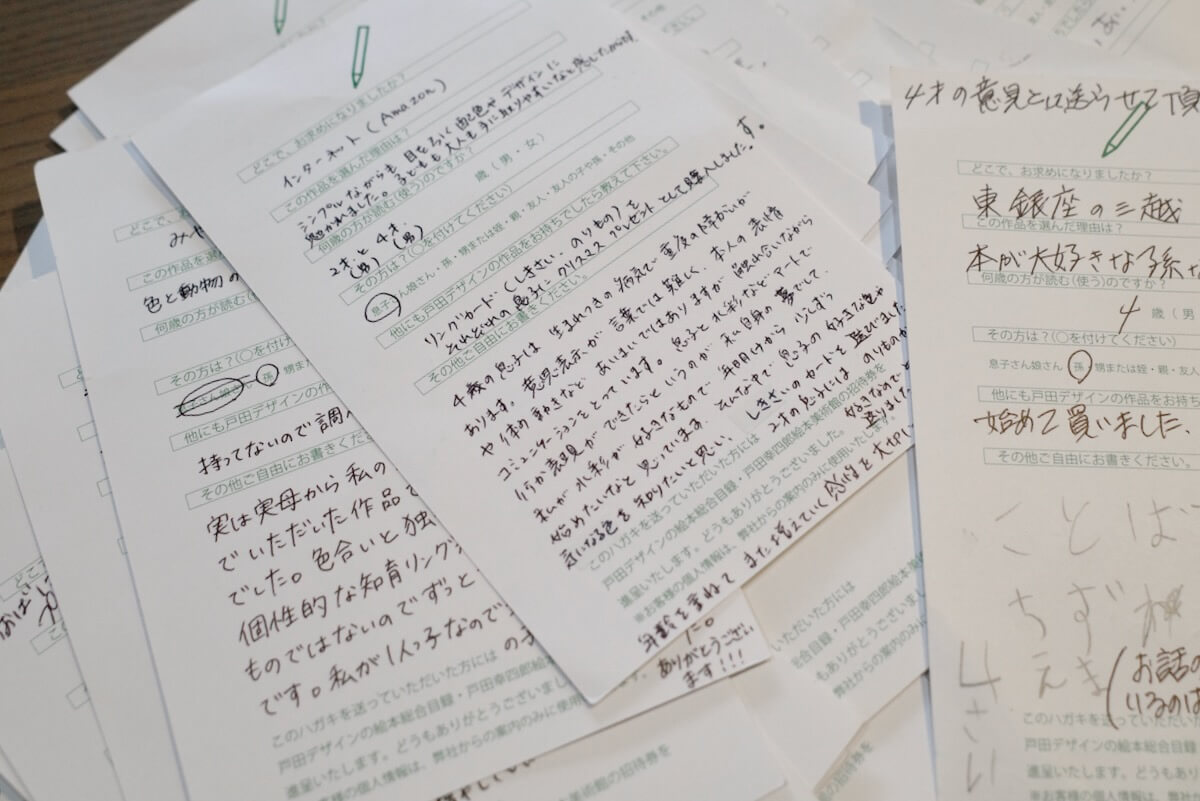 どこで、お求めになりましたか？
インターネット（Amazon）
この作品を選んだ理由は？
シンプルながらも、目をひく配色やデザインに
惹かれました。子どもも大人も手に取りやすいなと感じたからです。
何歳の方が読む（使う）のですか？
歳（男・女）
2才と4才。
（男）（男）
その方は？（○を付けてください）
息子さん娘さん・孫・甥または姪・親・友人・友人の子や孫・その他
他にも戸田デザインの作品をお持ちでしたら教えて下さい。
リングカード（しきさい、のりもの）を
それぞれの息子にクリスマスプレゼントとして購入しました。
その他ご自由にお書きください。
4歳の息子は生まれつきの病気で重度の障がいが
あります。意思表示が言葉では難しく、本人の表情
や体の動きなどあいまいではありますが触れ合いながら
コミュニケーションをとっています。息子と水彩などアートで
何か表現ができたらというのが私自身の夢でして、
私が水彩が好きなもので年明けから少しずつ
始めたいなと思っています。そんな中で息子の好きな色や
気になる色を知りたいと思い、しきさいのカードを選びました。
2才の息子にはのりものが
好きなので
選びました
年齢を重ねて また増えていく 感性を大切に
このハガキを送っていただいた方には
戸田デザインの絵本総合目録・戸田幸四郎絵本美術館の招待券を
進呈いたします。どうもありがとうございました。
※お客様の個人情報は、弊社からの案内のみに使用いたします。
どこで、お
みせ
この作品を選
色と動物の
何歳の方が読む
その方は？（○を付け
息子さん娘さん・孫・甥ま
他にも戸田デザインの作
持ってないので調べ
その他ご自由にお書きくだ
実は実母から私の
でいただいた作品
でした。色合いと独
個性的な知育リング
ものではないのでずっと
です。私が1人っ子なので
の子
ありがとうござい
ます！！！
このハガキを送っていただいた方には
戸田デザインの絵本総合目録・戸田幸四郎絵本
進呈いたします。どうもありがとうございまし
※お客様の個人情報は、弊社からの案内のみに使用
美術館の招待券を
いただいた方には
合目録・戸田幸四郎絵本美術
もありがとうございました
弊社からの案内のみに使用
4才の意見とし送らせて頂
どこで、お求めになりましたか？
東銀座の三越
この作品を選んだ理由は？
本が大好きな孫
何歳の方が読む（使う）のですか？
4 歳（男
その方は？（○を付けてください）
息子さん娘さん・孫・甥または姪・親・友人
他にも戸田デザインの作品をお持ち
始めて買いました、
その他ご自由にお書きください。
ことば
ちず
えき
4さい
（お話の
いるのは
このハガキを送っていただいた
戸田デザインの絵本総合目録
進呈いたします。どうもあり
※お客様の個人情報は、弊社